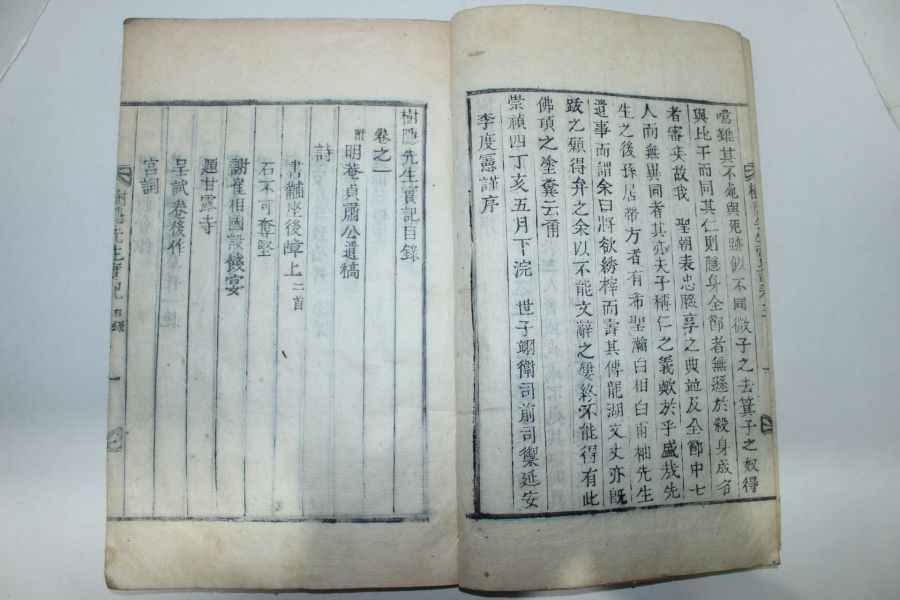 噫雖其不死與死跡似不同微子之去箕子之奴得
與比干而同其仁則隱身全節者無遜於殺身成名
者審矣故我 聖朝表忠腏享之典並及全節中七
人而無異同者其亦夫子稱仁之義歟於乎盛哉先
生之後孫居帶方者有希聖瀚白相白甫袖先生
遺事而謂余曰將欲綉梓而壽其傳龍湖文丈亦既
跋之願得弁之余以不能文辭之屢終不能得有此
佛項之塗糞云甭
崇禎四丁亥五月下浣 世子翊衛司前司禦延安
李度憲謹序
樹隱先生實記目錄
卷之一
附明菴貞肅公遺稿
詩
書黼座後障上二首
石不可奪堅
謝崔相國設餞宴
題甘露寺
呈試卷後作
宮詞
樹隱先生實記 目錄 一